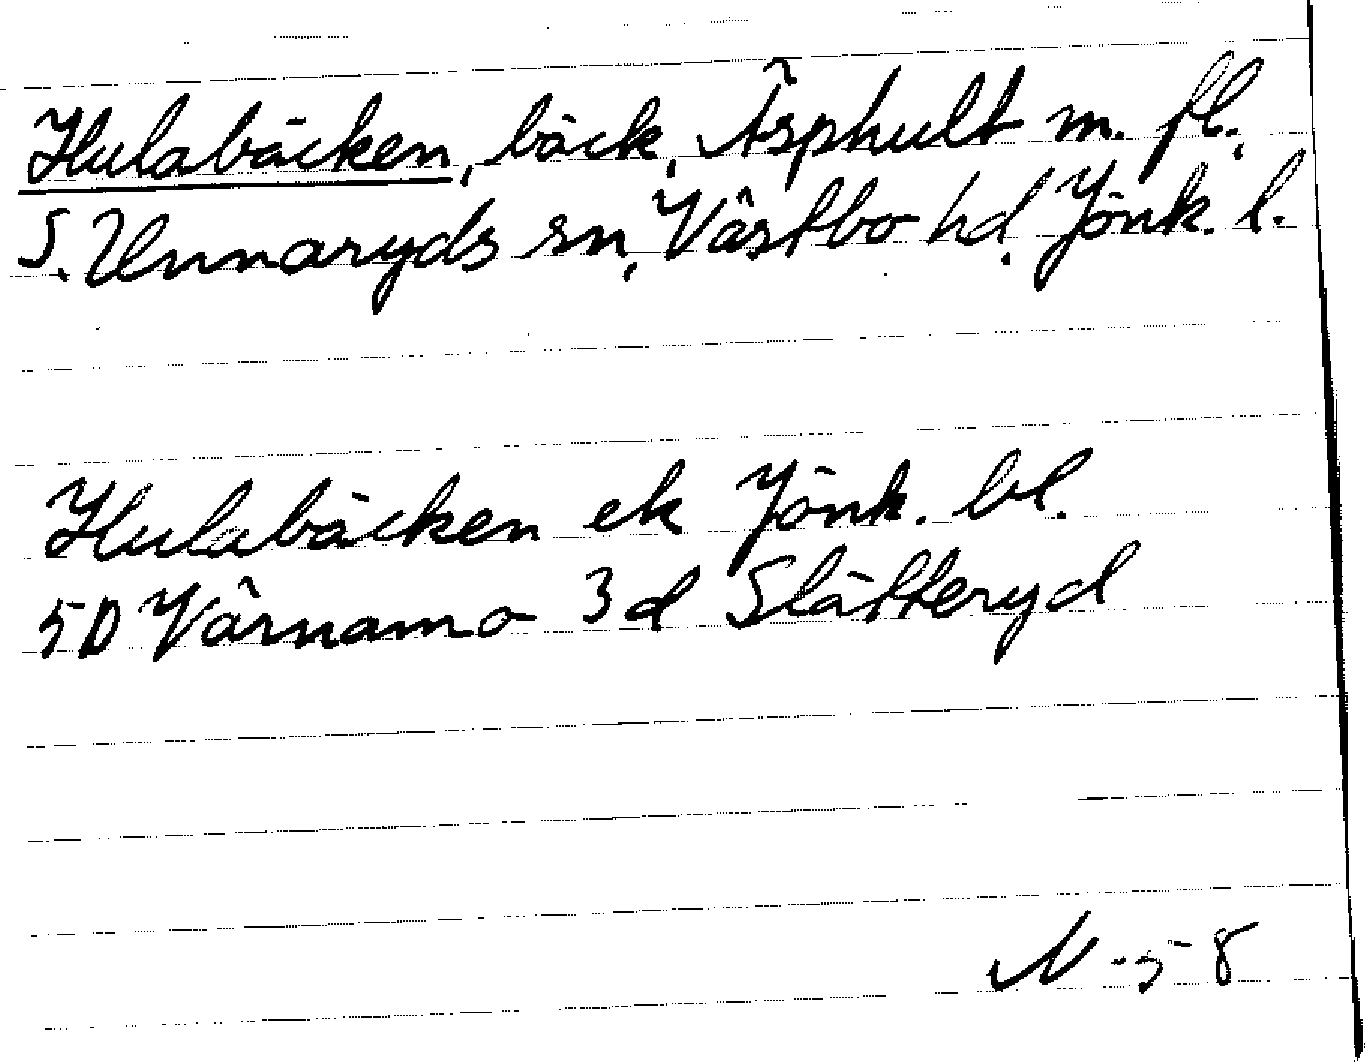 Hulabäcken, bäck, Äsphult m. fl.,
S. Unnaryds sn, Västbo hd, Jönk. l.
Hulabäcken ek Jönk. bl.
5D Värnamo 3d Slätteryd
N -58